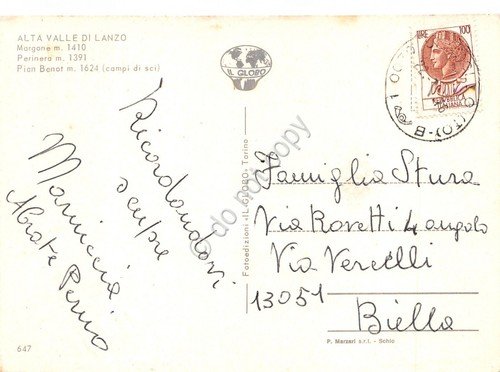 ALTA VALLE DI LANZO
Margone m. 1410
Perinera m. 1391
Pian Benot m. 1624 (campi di sci)
IL GLOBO
LIRE 100
Ricordandovi
sempre
Mariuccia
Abrate Perino
© do not copy
Fotoedizioni «IL GLOBO» Torino
Famiglia Stura
Via Rovetti 4 angolo
Via Vercelli
13051
Biella
647
P. Marzari s.r.l. - Schio